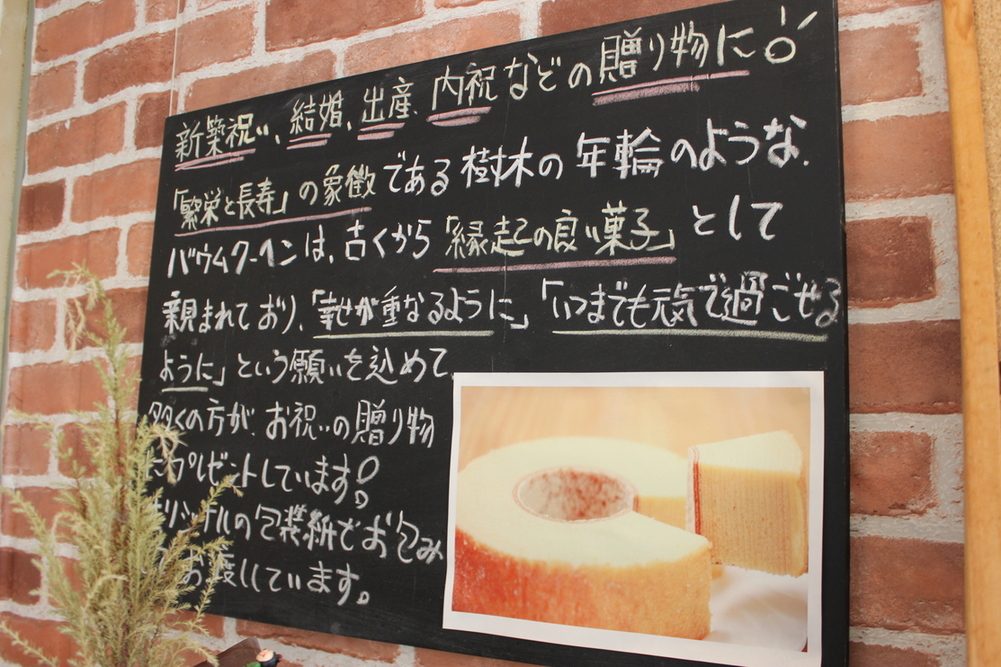 新築祝い、結婚、出産、内祝などの贈り物に!
「繁栄と長寿」の象徴である樹木の年輪のような
バウムクーヘンは、古くから「縁起の良い菓子」として
親まれており、「幸せが重なるように」「いつまでも元気で過ごせる
ように」という願いを込めて
多くの方が、お祝いの贈り物
プレゼントしています!
オリジナルの包装紙でお包み
お渡ししています。